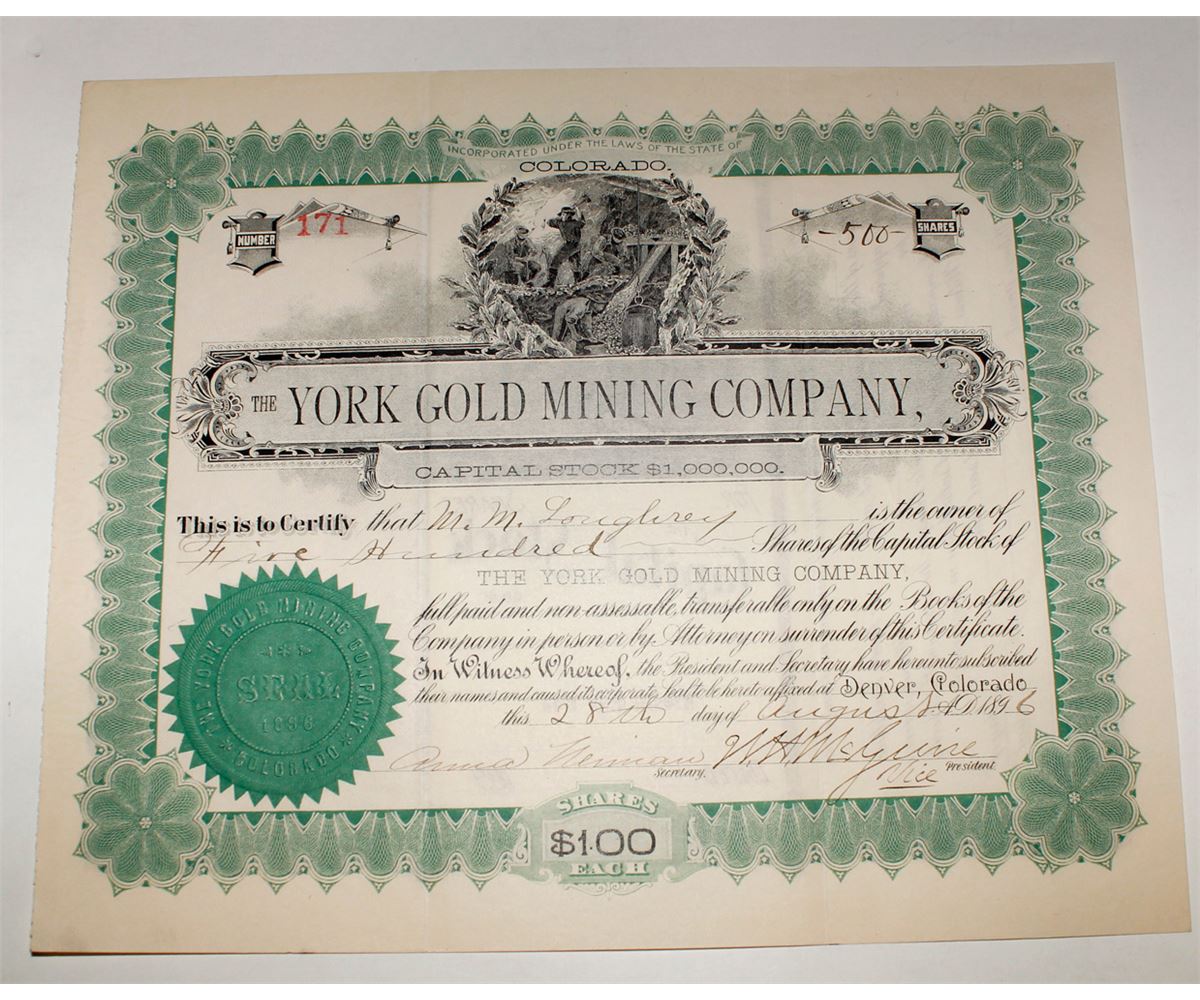 INCORPORATED UNDER THE LAWS OF THE STATE OF
COLORADO.
NUMBER 171
-500- SHARES
THE YORK GOLD MINING COMPANY,
CAPITAL STOCK $1,000,000.
This is to Certify that M. M. Loughrey is the owner of
Five Hundred Shares of the Capital Stock of
THE YORK GOLD MINING COMPANY,
full paid and non-assessable, transferable only on the Books of the
Company in person or by Attorney on surrender of this Certificate.
In Witness Whereof, the President and Secretary have hereunto subscribed
their names and caused its corporate Seal to be hereto affixed at Denver, Colorado
this 28th day of August A.D. 1896
Anna Neiman Secretary. W H McGuire Vice President.
THE YORK GOLD MINING COMPANY
SEAL
1896
COLORADO
SHARES
$1.00
EACH